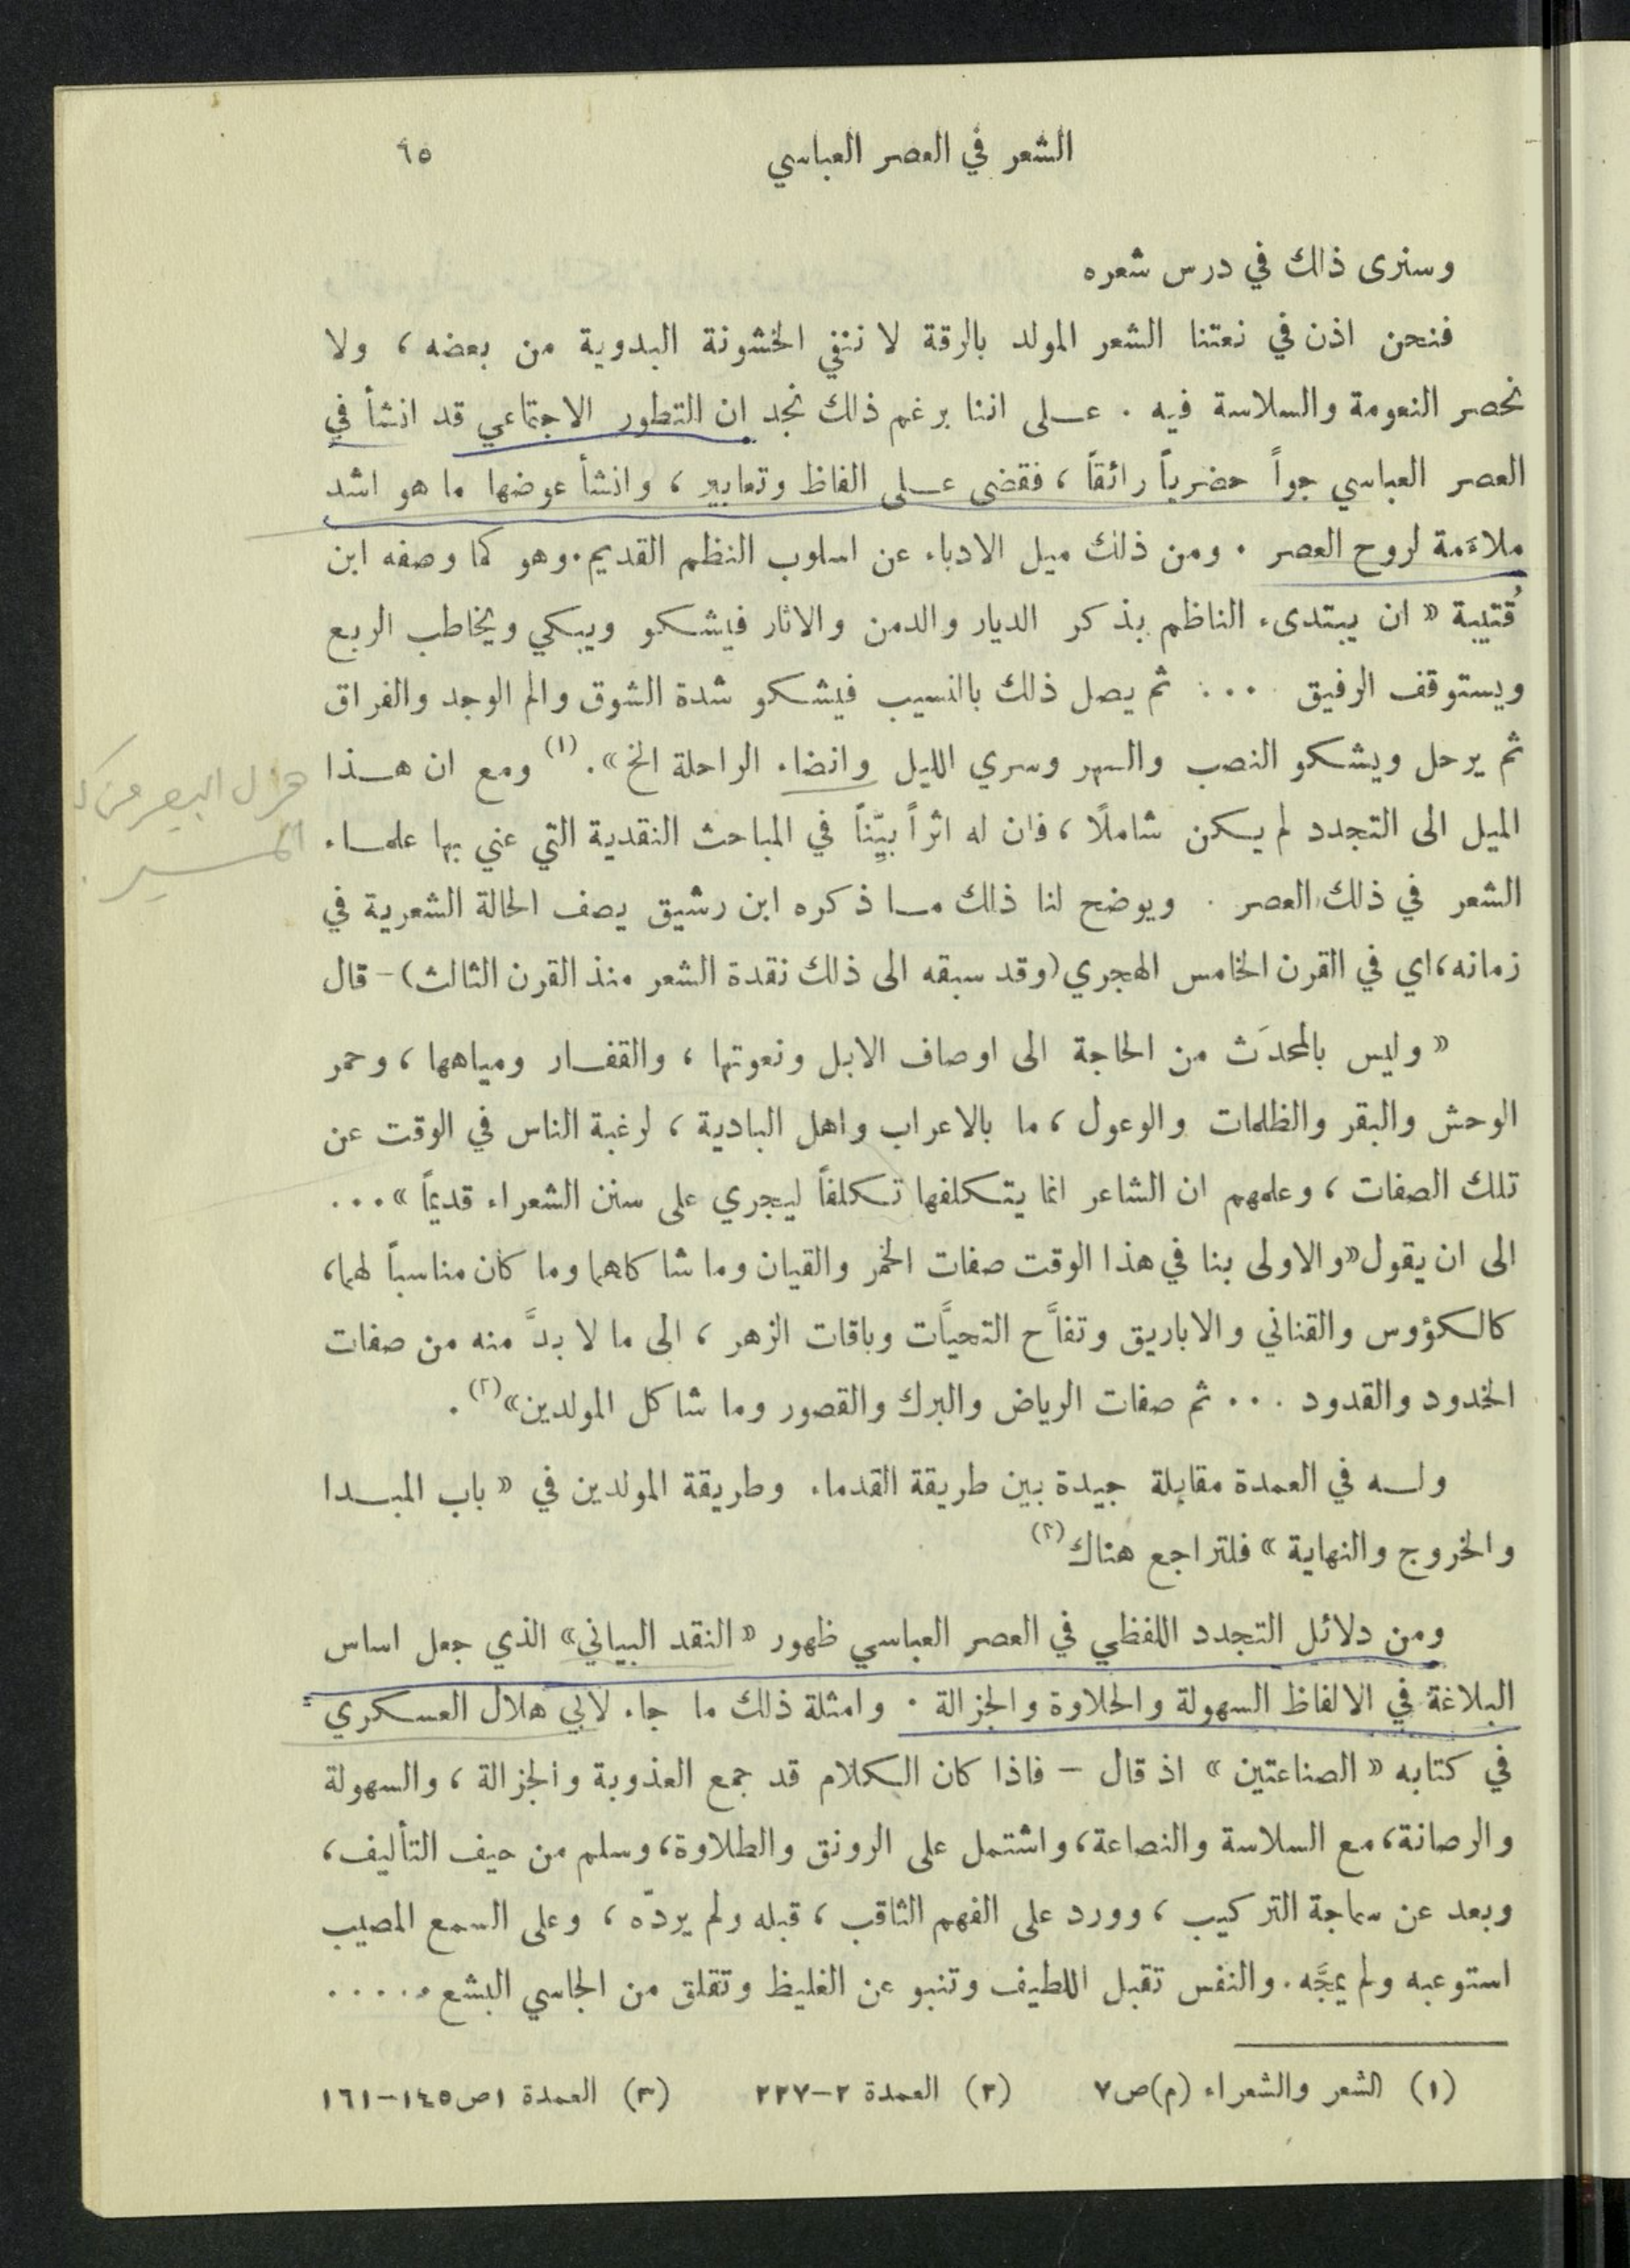 الشعر في العصر العباسي ٦٥
وسنرى ذلك في درس شعره
فنحن اذن في نعتنا الشعر المولد بالرقة لا ننفي الخشونة البدوية من بعضه ، ولا
نحصر النعومة والسلاسة فيه . على اننا برغم ذلك نجد ان التطور الاجتماعي قد انشأ في
العصر العباسي جواً حضرياً رائقاً ، فقضى على الفاظ وتعابير ، وانشأ عوضها ما هو اشد
ملاءَمة لروح العصر . ومن ذلك ميل الادباء عن اسلوب النظم القديم . وهو كما وصفه ابن
قُتيبة « ان يبتدىء الناظم بذكر الديار والدمن والاثار فيشكو ويبكي ويخاطب الربع
ويستوقف الرفيق ... ثم يصل ذلك بالنسيب فيشكو شدة الشوق والم الوجد والفراق
ثم يرحل ويشكو النصب والسهر وسري الليل وانضاء الراحلة الخ » . (١) ومع ان هذا
هزال البعير من
المسير
الميل الى التجدد لم يكن شاملًا ، فان له اثراً بيّناً في المباحث النقدية التي عني بها علماء
الشعر في ذلك العصر . ويوضح لنا ذلك ما ذكره ابن رشيق يصف الحالة الشعرية في
زمانه ، اي في القرن الخامس الهجري (وقد سبقه الى ذلك نقدة الشعر منذ القرن الثالث) - قال
« وليس بالمحدَث من الحاجة الى اوصاف الابل ونعوتها ، والقفار ومياهها ، وحمر
الوحش والبقر والظلمات والوعول ، ما بالاعراب واهل البادية ، لرغبة الناس في الوقت عن
تلك الصفات ، وعلمهم ان الشاعر انما يتكلفها تكلفاً ليجري على سنن الشعراء قديماً » ...
الى ان يقول « والاولى بنا في هذا الوقت صفات الخمر والقيان وما شاكاهما وما كان مناسباً لهما ،
كالكؤوس والقناني والاباريق وتفاَّح التحياَّت وباقات الزهر ، الى ما لا بدَّ منه من صفات
الخدود والقدود ... ثم صفات الرياض والبرك والقصور وما شاكل المولدين » (٢) .
وله في العمدة مقابلة جيدة بين طريقة القدماء وطريقة المولدين في « باب المبدا
والخروج والنهاية » فلتراجع هناك (٢)
ومن دلائل التجدد اللفظي في العصر العباسي ظهور « النقد البياني » الذي جعل اساس
البلاغة في الالفاظ السهولة والحلاوة والجزالة . وامثلة ذلك ما جاء لابي هلال العسكري
في كتابه « الصناعتين » اذ قال – فاذا كان الكلام قد جمع العذوبة والجزالة ، والسهولة
والرصانة ، مع السلاسة والنصاعة ، واشتمل على الرونق والطلاوة ، وسلم من حيف التأليف ،
وبعد عن سماجة التركيب ، وورد على الفهم الثاقب ، قبله ولم يردّه ، وعلى السمع المصيب
استوعبه ولم يمجَّه . والنفس تقبل اللطيف وتنبو عن الغليظ وتقلق من الجاسي البشع .....
(١) الشعر والشعراء (م) ص٧ (٢) العمدة ٢–٢٢٧ (٣) العمدة ١ص١٤٥–١٦١